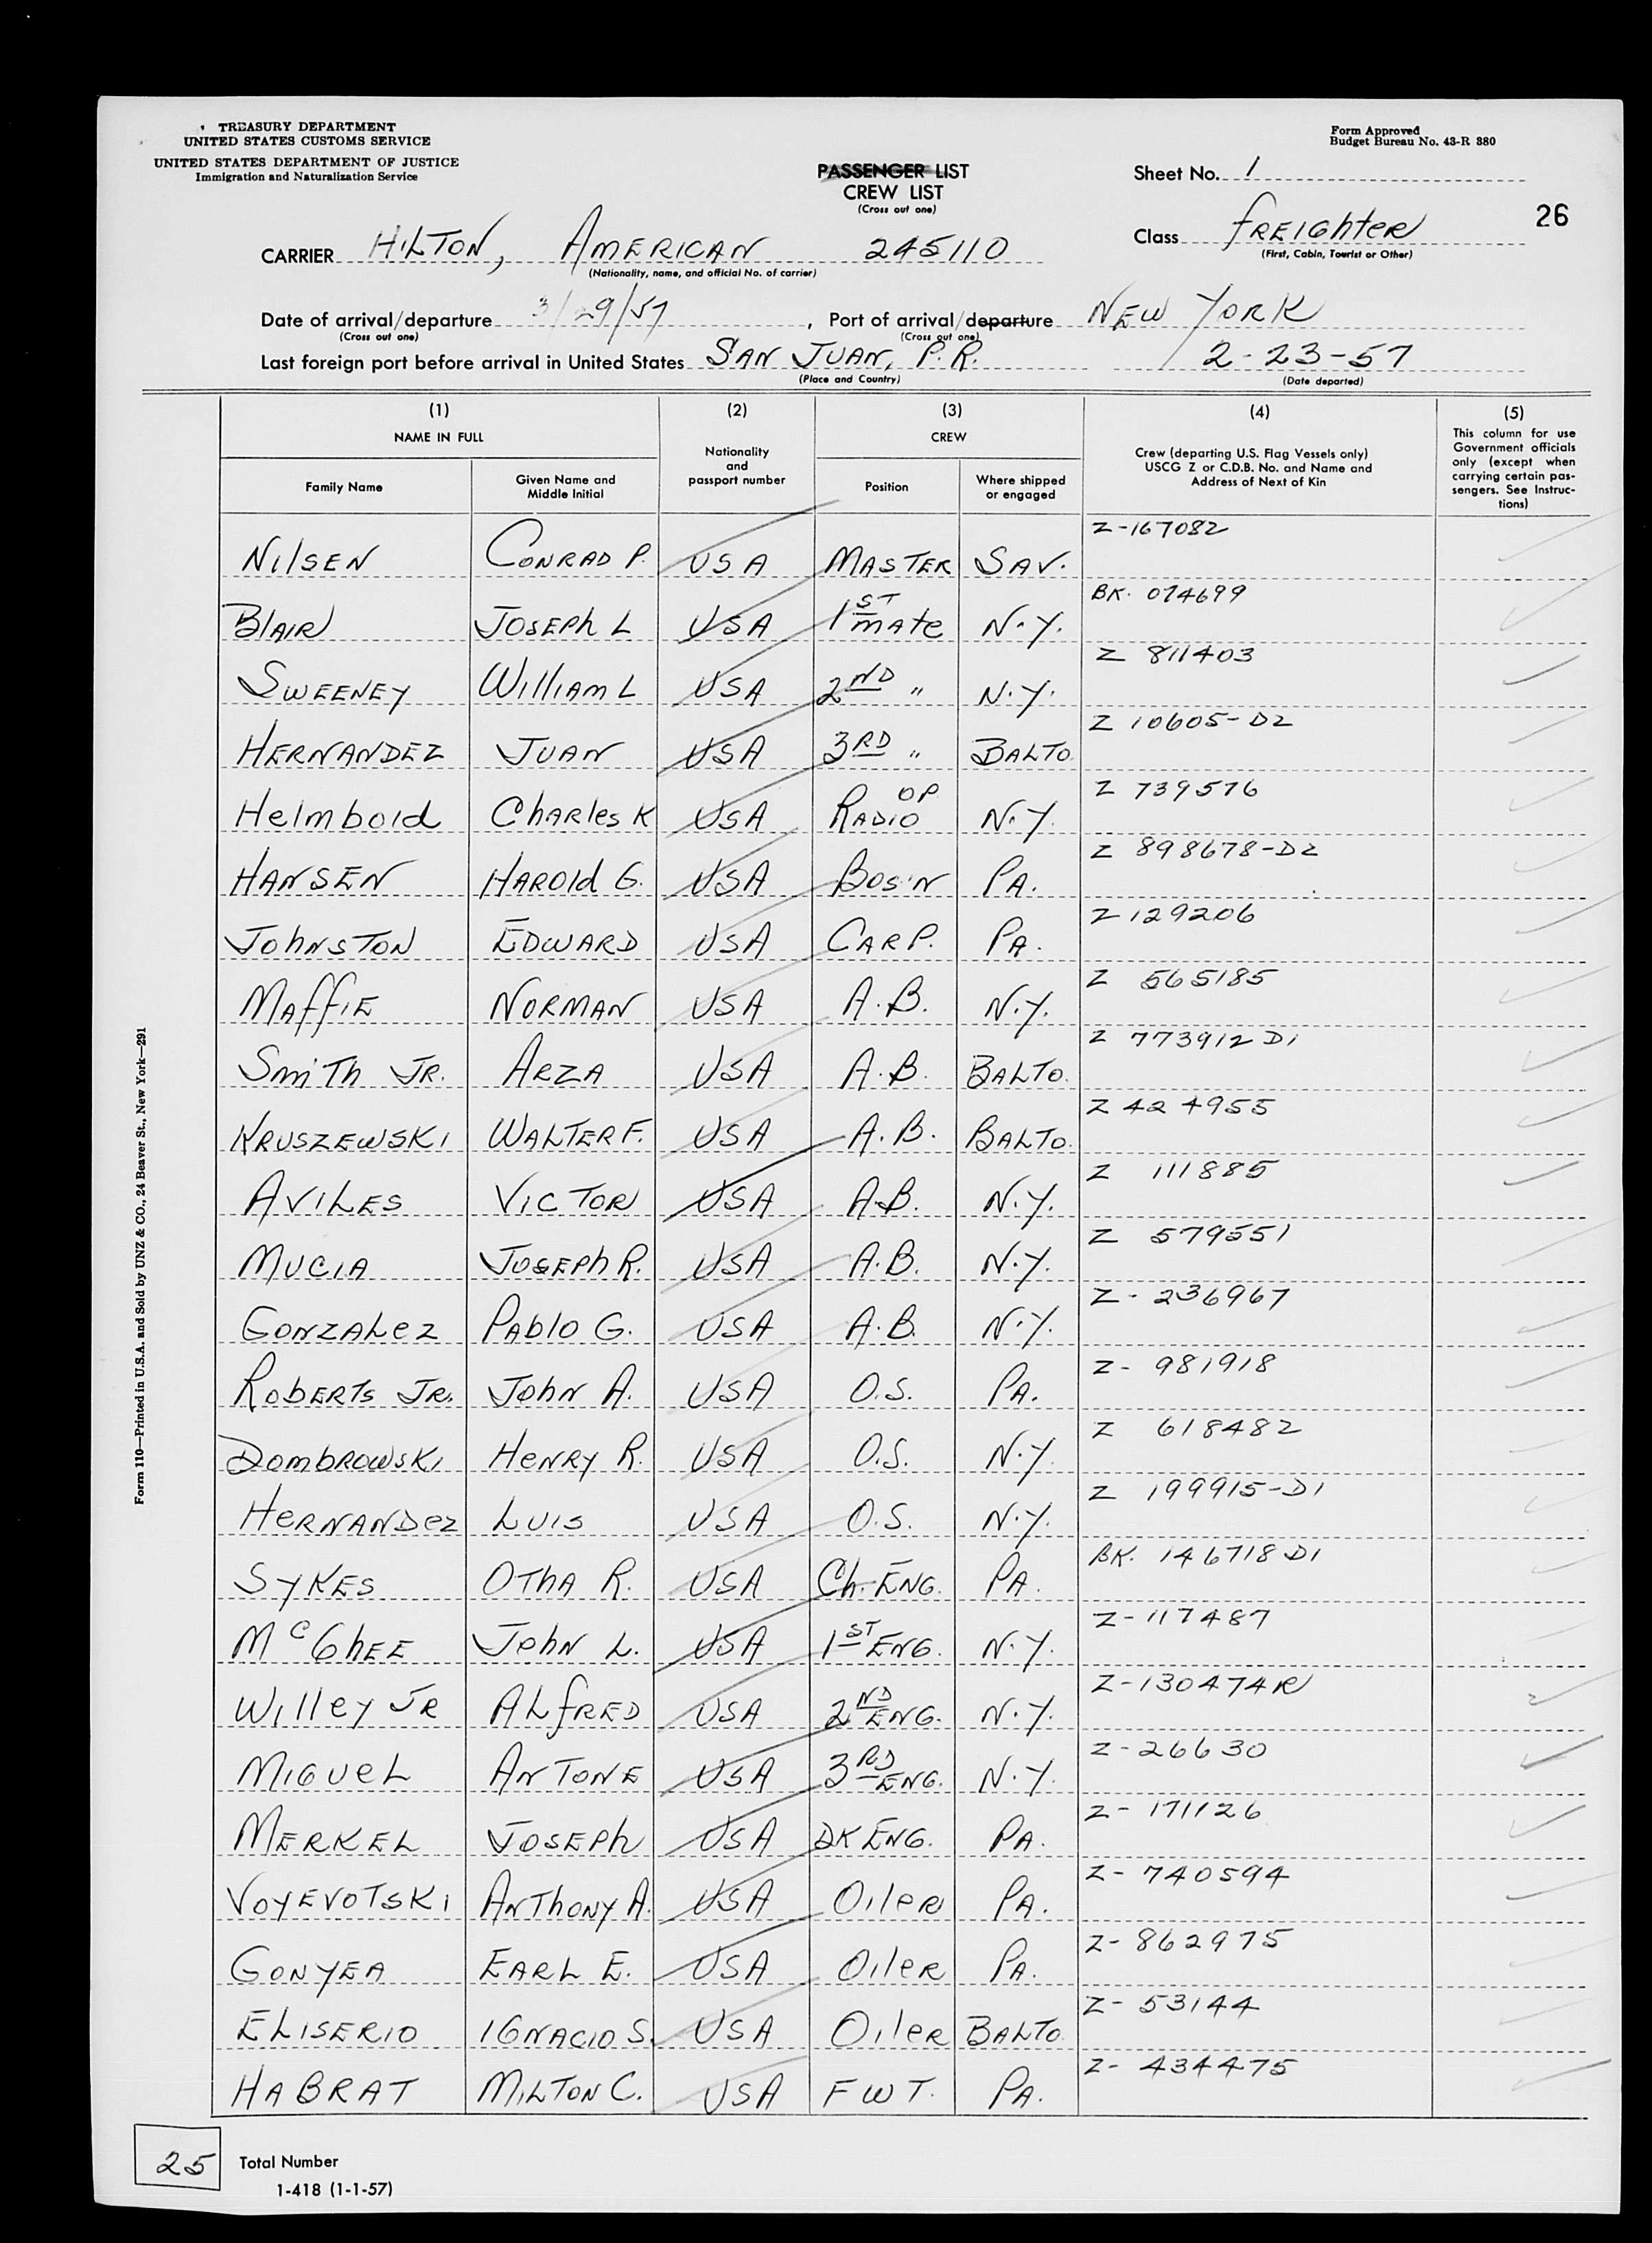 TREASURY DEPARTMENT
UNITED STATES CUSTOMS SERVICE
UNITED STATES DEPARTMENT OF JUSTICE
Immigration and Naturalization Service
Form Approved
Budget Bureau No. 43-R 380
PASSENGER LIST
CREW LIST
(Cross out one)
Sheet No. 1
26
CARRIER HILTON, AMERICAN 245110
(Nationality, name, and official No. of carrier)
Class FREIGHTER
(First, Cabin, Tourist or Other)
Date of arrival/departure 3/29/57, Port of arrival/departure NEW YORK
(Cross out one) (Cross out one)
Last foreign port before arrival in United States SAN JUAN, P.R. 2-23-57
(Place and Country) (Date departed)
(1) (2) (3) (4) (5)
NAME IN FULL
Family Name
Given Name and Middle Initial
Nationality and passport number
CREW
Position
Where shipped or engaged
Crew (departing U.S. Flag Vessels only)
USCG Z or C.D.B. No. and Name and
Address of Next of Kin
This column for use
Government officials
only (except when
carrying certain pas-
sengers. See Instruc-
tions)
NILSEN CONRAD P. USA MASTER SAV. Z-167082
BLAIR JOSEPH L USA 1ST MATE N.Y. BK. 074699
SWEENEY WILLIAM L USA 2ND " N.Y. Z 811403
HERNANDEZ JUAN USA 3RD " BALTO. Z 10605-D2
Helmbold Charles K USA RADIO OP N.Y. Z 739576
HANSEN HAROLD G. USA BOS'N PA. Z 898678-D2
JOHNSTON EDWARD USA CARP. PA. Z-129206
MAFFIE NORMAN USA A.B. N.Y. Z 565185
SMITH JR. ARZA USA A.B. BALTO. Z 773912 D1
KRUSZEWSKI WALTER F. USA A.B. BALTO. Z 424955
AVILES VICTOR USA A.B. N.Y. Z 111885
MUCIA JOSEPH R. USA A.B. N.Y. Z 579551
GONZALEZ PABLO G. USA A.B. N.Y. Z-236967
ROBERTS JR. JOHN A. USA O.S. PA. Z-981918
DOMBROWSKI HENRY R. USA O.S. N.Y. Z 618482
HERNANDEZ LUIS USA O.S. N.Y. Z 199915-D1
SYKES OTHA R. USA Ch. ENG. PA. BK. 146718 D1
McGHEE JOHN L. USA 1ST ENG. N.Y. Z-117487
WILLEY JR ALFRED USA 2ND ENG. N.Y. Z-130474R
MIGUEL ANTONE USA 3RD ENG. N.Y. Z-26630
MERKEL JOSEPH USA DK ENG. PA. Z-171126
VOYEVOTSKI ANTHONY A. USA OILER PA. Z-740594
GONYEA EARL E. USA OILER PA. Z-862975
ELISERIO IGNACIO S. USA OILER BALTO. Z-53144
HABRAT MILTON C. USA FWT. PA. Z-434475
25 Total Number
1-418 (1-1-57)
Form 1110—Printed in U.S.A. and Sold by UNZ & CO., 24 Beaver St., New York—291